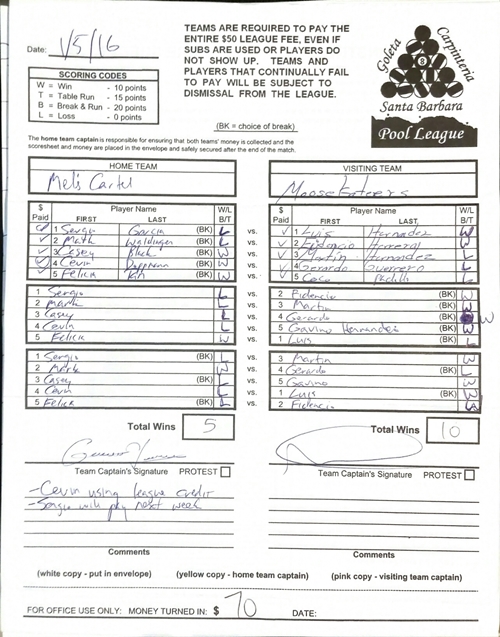 Date: 1/5/16
SCORING CODES
W = Win - 10 points
T = Table Run - 15 points
B = Break & Run - 20 points
L = Loss - 0 points
TEAMS ARE REQUIRED TO PAY THE
ENTIRE $50 LEAGUE FEE, EVEN IF
SUBS ARE USED OR PLAYERS DO
NOT SHOW UP. TEAMS AND
PLAYERS THAT CONTINUALLY FAIL
TO PAY WILL BE SUBJECT TO
DISMISSAL FROM THE LEAGUE.
(BK = choice of break)
Goleta Carpinteria
8
Santa Barbara
Pool League
The home team captain is responsible for ensuring that both teams' money is collected and the
scoresheet and money are placed in the envelope and safely secured after the end of the match.
HOME TEAM
Mel's Cartel
$ Paid Player Name FIRST LAST W/L B/T
1 Sergio Garcia (BK) L vs.
2 Mark (BK) L vs.
3 Casey Black (BK) W vs.
4 Cevin (BK) W vs.
5 Felicia (BK) W vs.
1 Sergio L vs.
2 Mark L vs.
3 Casey L vs.
4 Cevin L vs.
5 Felicia W vs.
1 Sergio (BK) L vs.
2 Mark W vs.
3 Casey (BK) L vs.
4 Cevin L vs.
5 Felicia (BK) L vs.
Total Wins 5
Team Captain's Signature PROTEST
-Cevin using league credit
-Sergio will pay next week
Comments
VISITING TEAM
Moose Eaters
$ Paid Player Name FIRST LAST W/L B/T
1 Luis Hernandez W
2 Fidencio Herrera W
3 Martin Hernandez L
4 Gerardo Guerrero L
5 Coco L
2 Fidencio (BK) W
3 Martin (BK) W
4 Gerardo (BK) W
5 Gavino Hernandez (BK) W
1 Luis (BK) L
3 Martin W
4 Gerardo (BK) L
5 Gavino W
1 Luis (BK) W
2 Fidencio
Total Wins 10
Team Captain's Signature PROTEST
Comments
(white copy - put in envelope) (yellow copy - home team captain) (pink copy - visiting team captain)
FOR OFFICE USE ONLY: MONEY TURNED IN: $ 70 DATE: